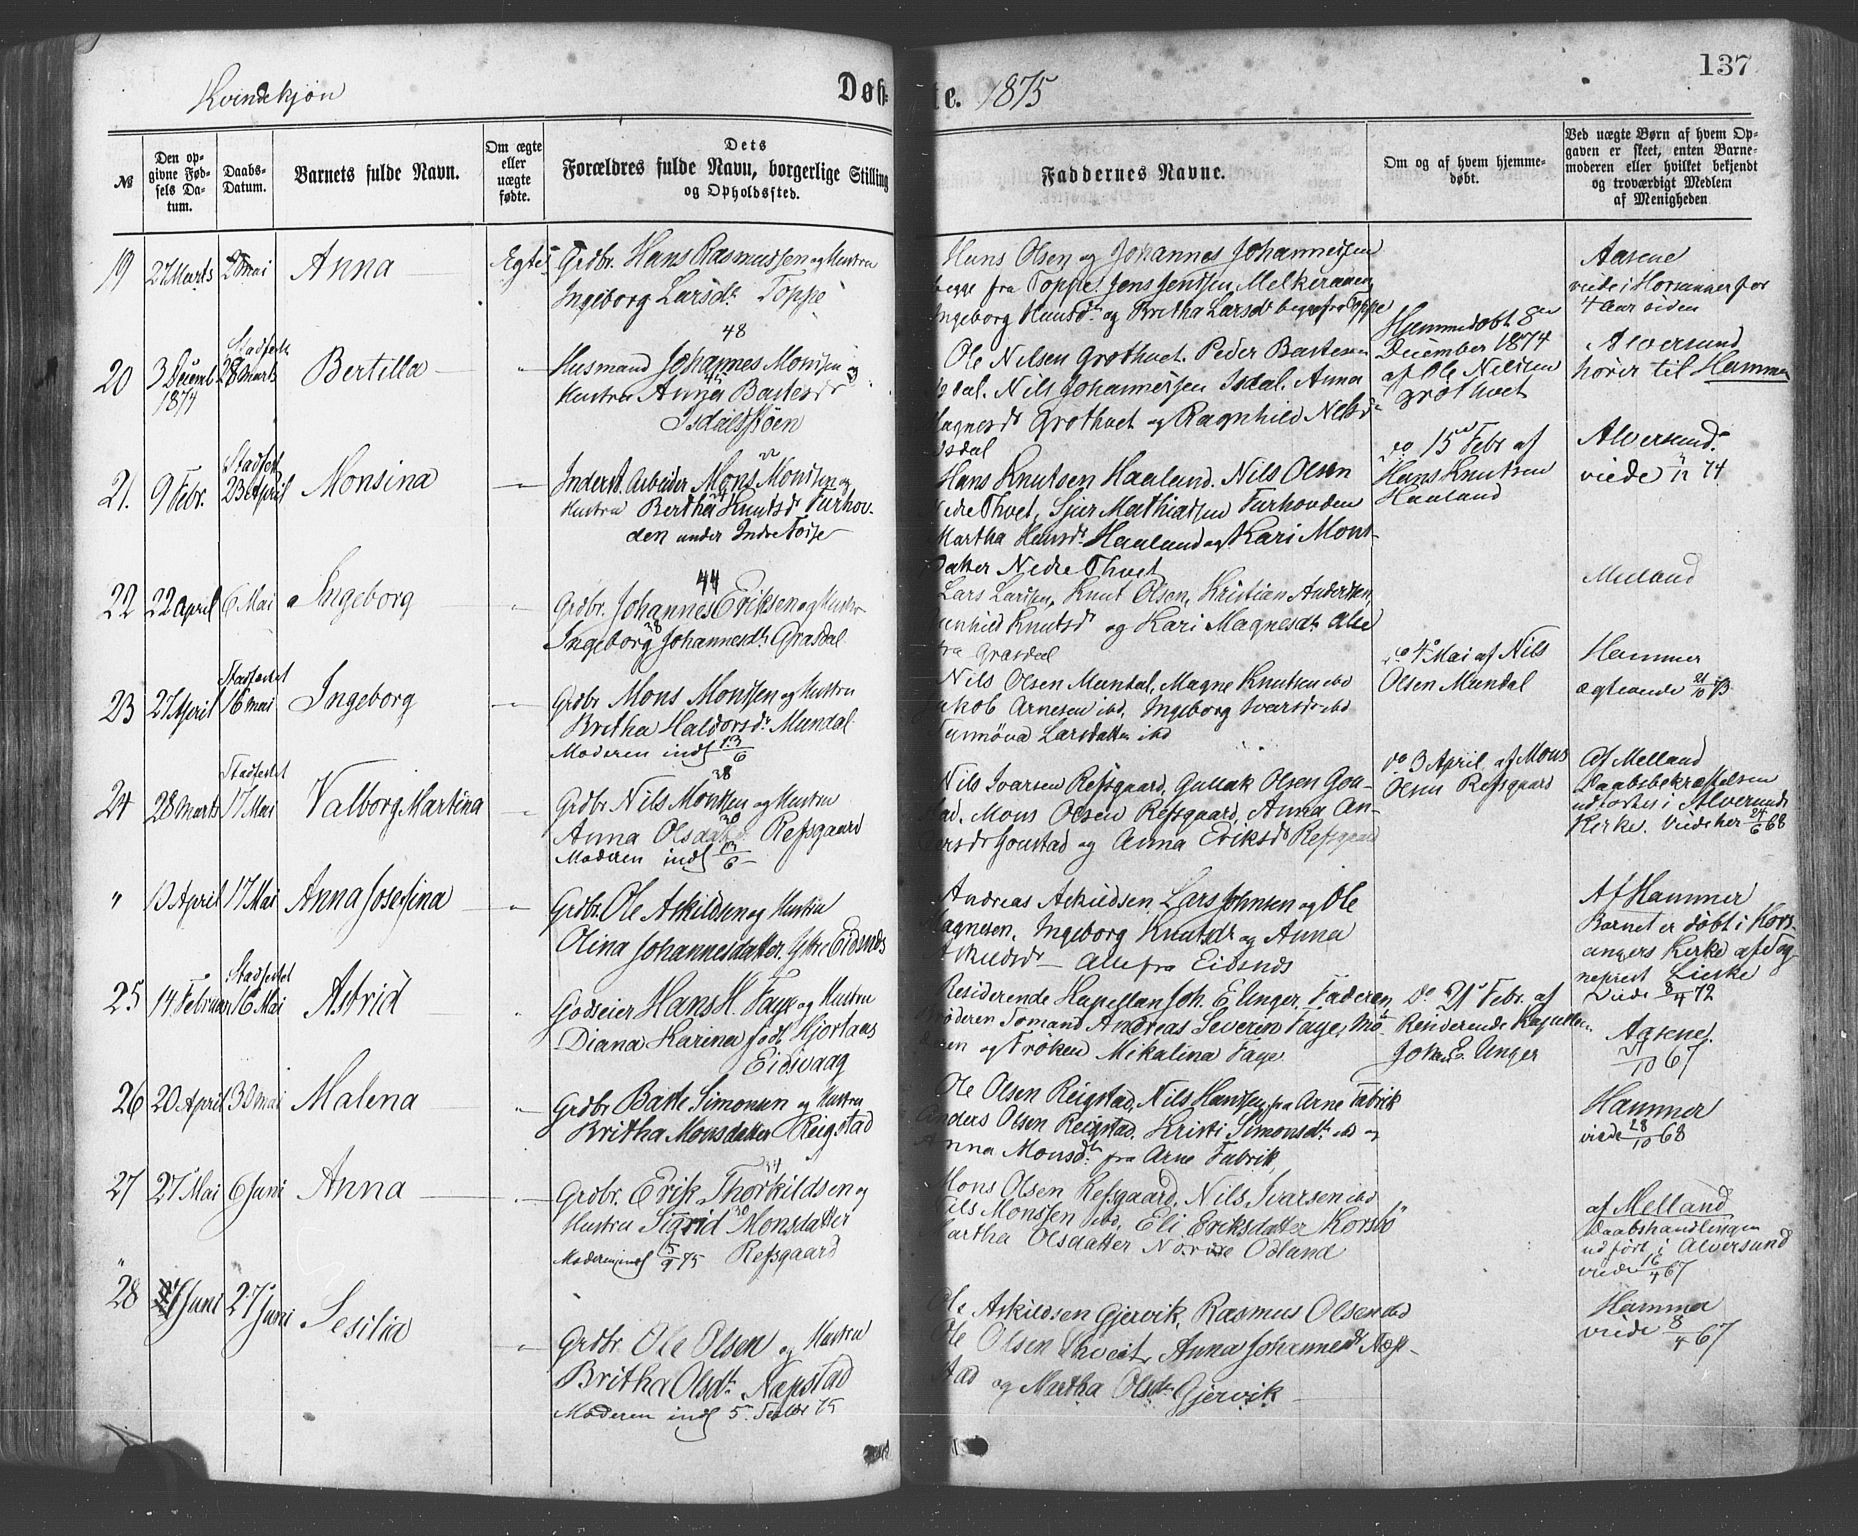 137
Kvindekjøn
Døb- te. 1875
№
Den opgivne Fødsels Datum.
Daabs-Datum.
Barnets fulde Navn.
Om ægte eller uægte fødte.
Dets Forældres fulde Navn, borgerlige Stilling og Opholdssted.
Faddernes Navne.
Om og af hvem hjemmedøbt.
Ved uægte Børn af hvem Opgaven er skeet, enten Barnemoderen eller hvilket bekjendt og troværdigt Medlem af Menigheden
19 27 Marts 2 Mai Anna Egte Grdbr. Hans Rasmussen og Hustru
Ingeborg Larsdt. Toppe
Hans Olsen og Johannes Johannessen
begge fra Toppe. Jens Jentsen
Ingeborg Hansdt. og Britha Larsdt begge fra Toppe
Aasene
viede i Horsanger for
4 Aar siden
20 3 Decemb 1874 Stadfestet 28 Marts Bertilla
Husmand Johannes Monssen 48 og
Hustru Anna Bastesdt
Isdalstøen
Ole Nilsen Grothvet. Peder Bastesen
Isdal. Nils Johannessen Isdal. Anna
Magnesdt Grothvet og Ragnhild Nilsdt
Isdal
Hjemmedøbt 8de
December 1874
af Ole Nilsen
Grothvet
Alversund
hører til Hammer
21. 9 Febr. Stadfest 23 April Monsina
Inderst. Arbeider Mons Monssen og
Hustru Bertha Knutsdt Furhov-
den under Indre Tosse
Hans Knutsen Haaland. Nils Olsen
Nedre Thvet, Sjur Mathiassen Furhovden
Martha Hansdt. Haaland og Kari Mons-
datter Nedre Thvet
do 15de Febr af
Hans Knutsen
Haaland
Alversund.
viede 74
22 22 April 6 Mai Ingeborg
44
Grdbr. Johannes Eriksen og Hustru
38
Ingeborg Johannesdt. Grasdal
Lars Larssen, Knut Olsen, Kristian Andersen,
Knutsdt og Kari Magnesdt. Alle
fra Grasdal
Meland
23 27 April Stadfestet 16 Mai Ingeborg
Grdbr Mons Monssen og Hustru
Britha Haldorsdt. Mundal
Moderen indl 13/6
Nils Olsen Mundal, Magne Knutsen ibd
Jakob Arnesen ibd, Ingeborg Ivarsdt ibd
Larsdatter ibd
do 4de Mai af Nils
Olsen Mundal
Hammer
ægteviede 21/10 73
24 28 Marts Stadfestet 17 Mai Valborg Martina
38
Grdbr. Nils Monssen og Hustru
30
Anna Olsdatter Refsgaard
Moderen indl 13/6
Nils Ivarsen Refsgaard, Gullak Olsen Gou-
stad. Mons Olsen Refsgaard, Anna An-
dersdt Goustad og Anna Eriksdt Refsgaard
do 3 April af Mons
Olsen Refsgaard
Af Melland
Daabsbekræftelsen
udførtes i Alversunds
Kirke. Viede her 24/6 68
" 13 April 17 Mai Anna Josefina
Grdbr. Ole Askildsen og Hustru
Olina Johannesdatter. Ytre Eidsnes
Andreas Askildsen, Lars Johnsen og Ole
Magnesen, Ingeborg Knutsdt og Anna
Askildsdt Alle fra Eidsnes
Af Hammer
Barnet er døbt i Hors-
angers Kirke af Sog-
neprest Lieske
Viede 8/4 72
25 14 Februar Stadfestet 16 Mai Astrid
Godseier Hans H. Faye og Hustru
Diana Karina født Hjortaas
Eidsvaag
Residerende Kapellan Joh. E. Unger, Faderen,
Broderen Tomand Andreas Severin Faye, Mo-
deren og Frøken Mikalina Faye
Do 21de Febr. af
Residerende Kapellan
Johan E. Unger
Aasene.
21/10 67
26 20 April 30 Mai Malena
Grdbr Baste Simonsen og Hustru
Britha Monsdatter Reigstad
Ole Olsen Reigstad, Nils Hanssen fra Arne Fabrik
Anders Olsen Reigstad. Kristi Simonsdt. ibd og
Anna Monsdt. fra Arne Fabrik,
Hammer
viede 28/10 68
27 27 Mai 6 Juni Anna
34
Grdbr. Erik Thorkildsen og
30
Hustru Sigrid Monsdatter
Moderen indl 5/9 75 Refsgaard
Mons Olsen Refsgaard, Nils Ivarsen ibd
Nils Monssen ibd, Eli Eriksdatter Korsbø
Martha Olsdatter Nordre Odland
af Melland
Daabshandlingen
udført i Alversund
viede 16/4 67
28 Juni 27 Juni Sesilia
Grdbr. Ole Olsen og Hustru
Britha Olsdt. Næpstad
Moderen indl 5. 75
Ole Askildsen Gjervik, Rasmus Olsen ibd
Ole Olsen Thveit, Anna Johannesdt Næp-
stad og Martha Olsdt. Gjervik
Hammer
viede 8/4 67